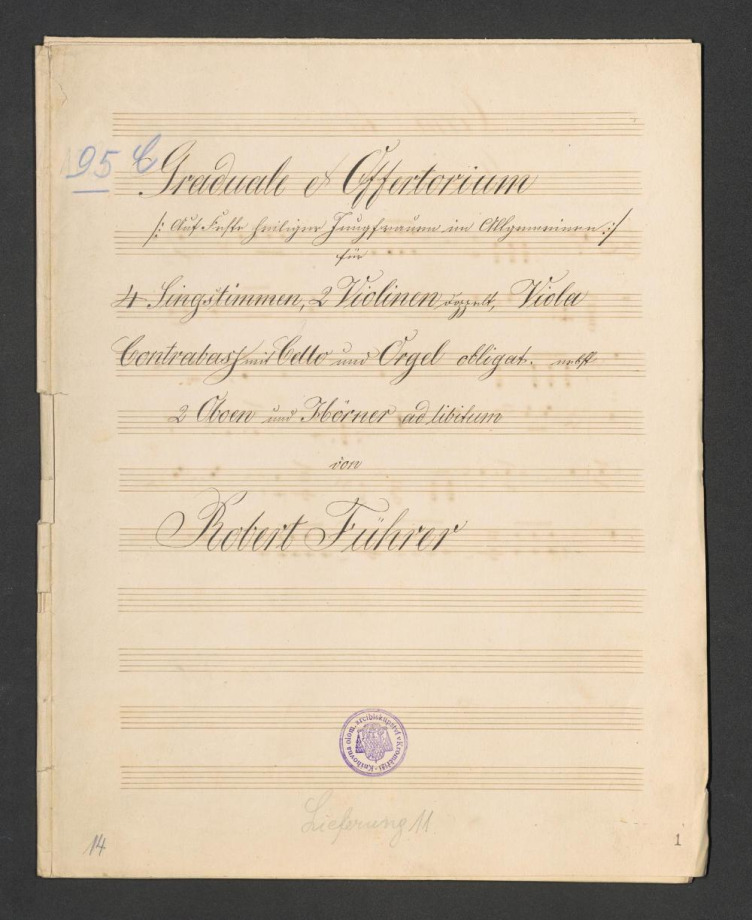 95 C
Graduale et Offertorium
/: Auf Feste heiliger Jungfrauen im Allgemeinen :/
für
4 Singstimmen, 2 Violinen doppelt, Viola
Contrabass mit Cello und Orgel obligat. nebst
2 Oboen und Hörner ad libitum
von
Robert Führer
Knihovna olom. arcibiskupství v Kroměříži
Lieferung 11
14
1